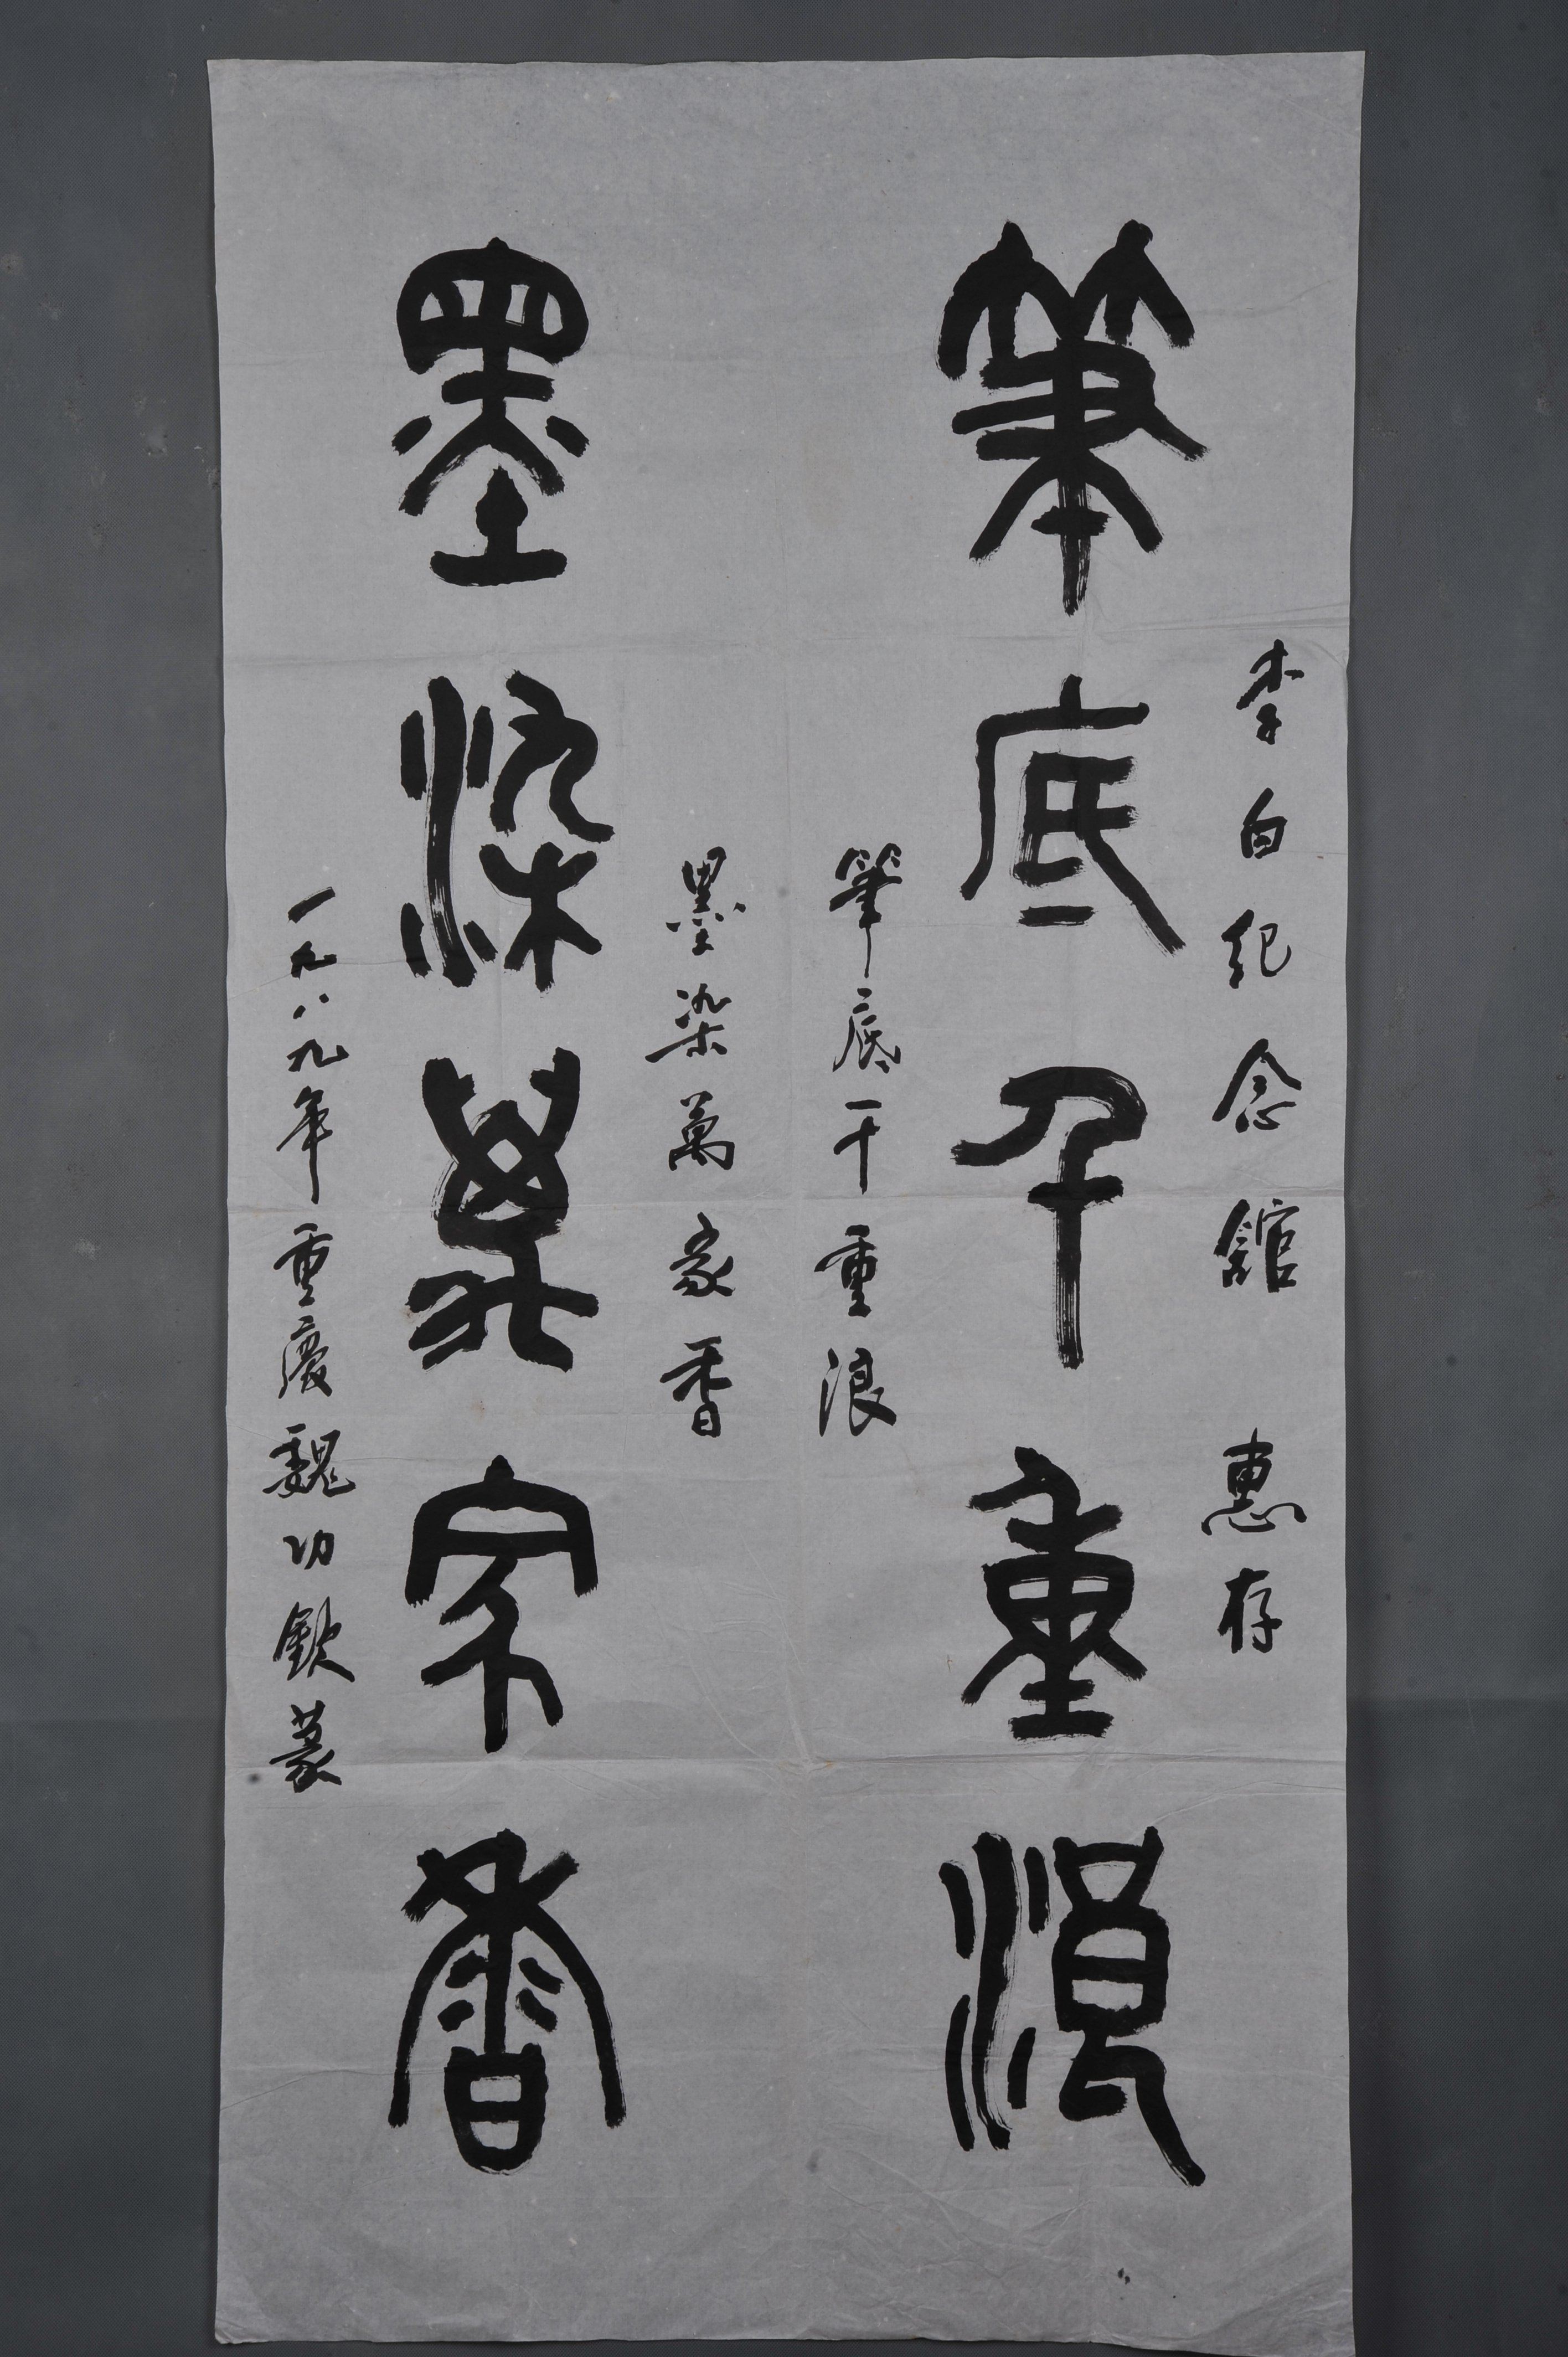 李白紀念舘 惠存
筆底千重浪
筆底千重浪
墨染萬家香
墨染萬家香
一九八九年重慶魏功欽篆